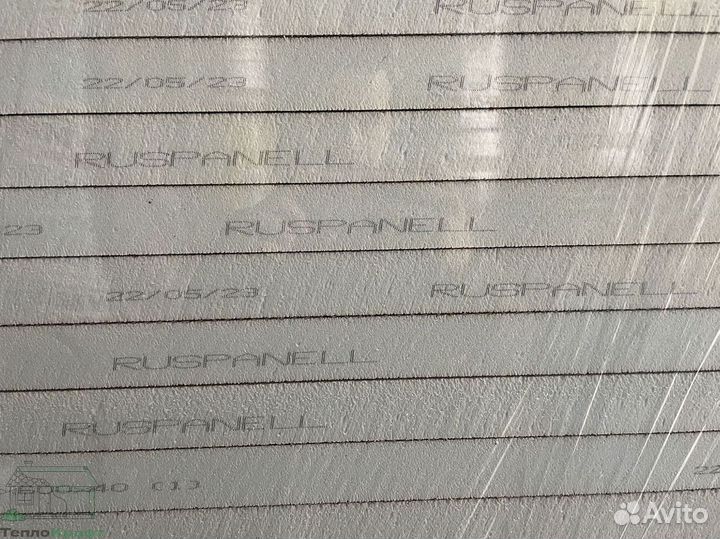 22/05/23 RUSPANELL
22/05/23 RUSPANELL
RUSPANELL
23 RUSPANELL
22/05/23 RUSPANELL
RUSPANELL
RUSPANELL
22
600*40 (1)
Avito